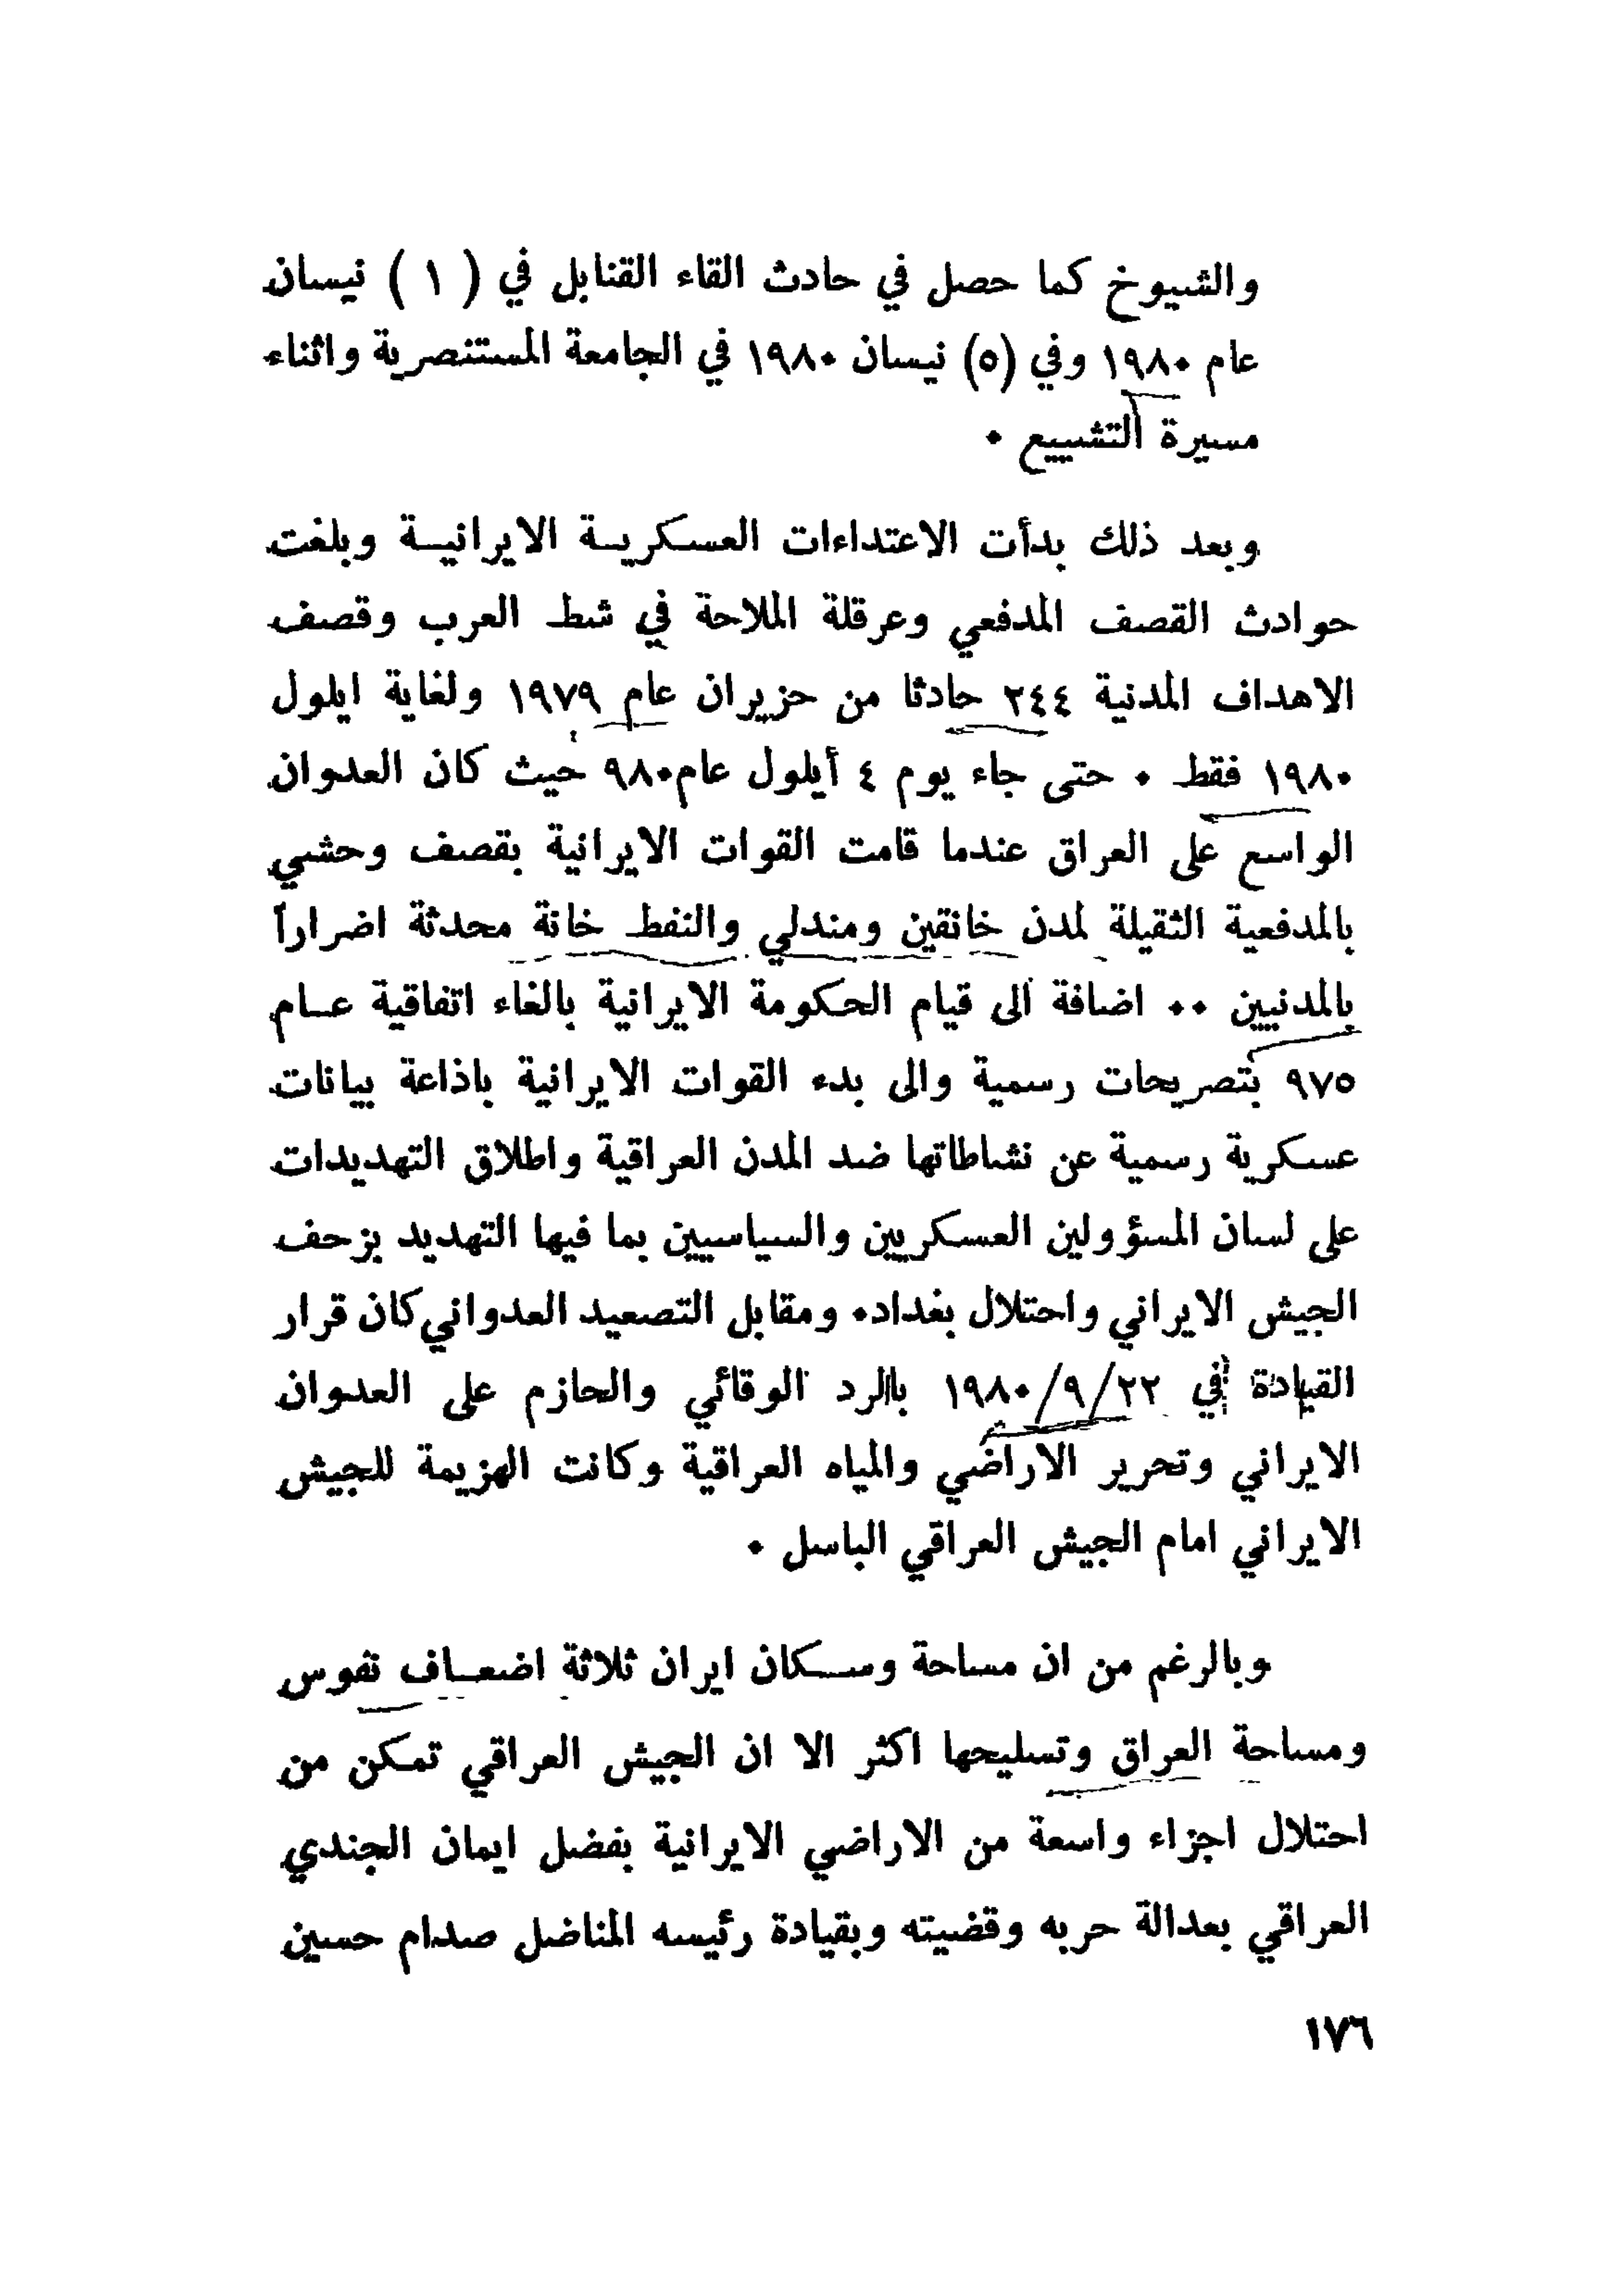 والشيوخ كما حصل في حادث القاء القنابل في ( ١ ) نيسان
عام ١٩٨٠ وفي (٥) نيسان ١٩٨٠ في الجامعة المستنصرية واثناء
مسيرة التشييع ٠
وبعد ذلك بدأت الاعتداءات العسكرية الايرانية وبلغت
حوادث القصف المدفعي وعرقلة الملاحة في شط العرب وقصف
الاهداف المدنية ٢٤٤ حادثا من حزيران عام ١٩٧٩ ولغاية ايلول
١٩٨٠ فقط ٠ حتى جاء يوم ٤ أيلول عام ٩٨٠ حيث كان العدوان
الواسع على العراق عندما قامت القوات الايرانية بقصف وحشي
بالمدفعية الثقيلة لمدن خانقين ومندلي والنفط خانة محدثة اضراراً
بالمدنيين ٠٠ اضافة الى قيام الحكومة الايرانية بالغاء اتفاقية عام
٩٧٥ بتصريحات رسمية والى بدء القوات الايرانية باذاعة بيانات
عسكرية رسمية عن نشاطاتها ضد المدن العراقية واطلاق التهديدات
على لسان المسؤولين العسكريين والسياسيين بما فيها التهديد بزحف
الجيش الايراني واحتلال بغداد٠ ومقابل التصعيد العدواني كان قرار
القيادة في ١٩٨٠/٩/٢٢ بالرد الوقائي والحازم على العدوان
الايراني وتحرير الاراضي والمياه العراقية وكانت الهزيمة للجيش
الايراني امام الجيش العراقي الباسل ٠
وبالرغم من ان مساحة وسكان ايران ثلاثة اضعاف نفوس
ومساحة العراق وتسليحها اكثر الا ان الجيش العراقي تمكن من
احتلال اجزاء واسعة من الاراضي الايرانية بفضل ايمان الجندي
العراقي بعدالة حربه وقضيته وبقيادة رئيسه المناضل صدام حسين
١٧٦